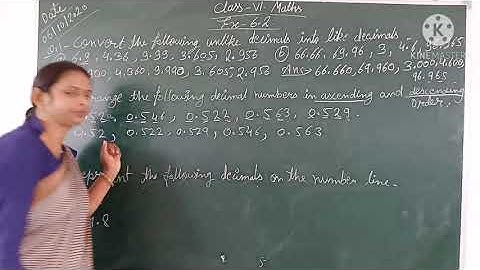 Date
06/10/2020
Class-VI Maths
Ex-6.2
Q1- Convert the following unlike decimals into like decimals
6.9, 4.36, 9.99, 3.605, 2.956 66.66, 69.96, 3,
KINEMASTER
900, 4.360, 9.990, 3.605, 2.956 Ans:- 66.660, 69.960, 3.000, 4.600
96.965
range the following decimal numbers in ascending and descending
order.
0.546, 0.522, 0.563, 0.529.
0.52, 0.522, 0.529, 0.546, 0.563
present the following decimals on the number line.
.8